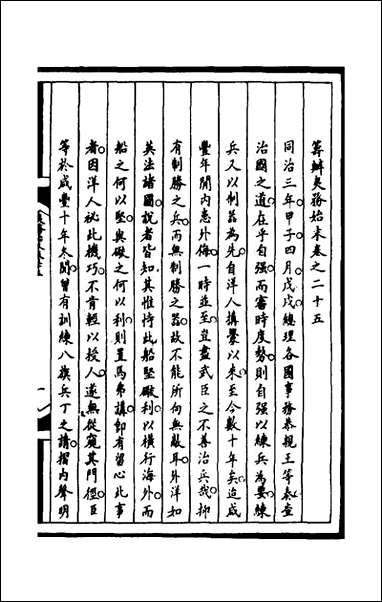 籌辦夷務始末卷之二十五
同治三年甲子四月戊戌總理各國事務恭親王等奏查
治國之道在乎自强而審時度勢則自强以練兵為要練
兵又以制器為先自洋人搆釁以來至今數十年矣迨咸
豐年閒內患外侮一時並至豈盡武臣之不善治兵哉抑
有制勝之兵而無制勝之器故不能所向無敵耳外洋如
英法諸國說者皆知其惟恃此船堅礮利以橫行海外而
船之何以堅與礮之何以利則置焉弗講卽有留心此事
者因洋人祕此機巧不肯輕以授人遂無從窺其門徑臣
等於咸豐十年冬閒曾有訓練八旗兵丁之請摺內聲明